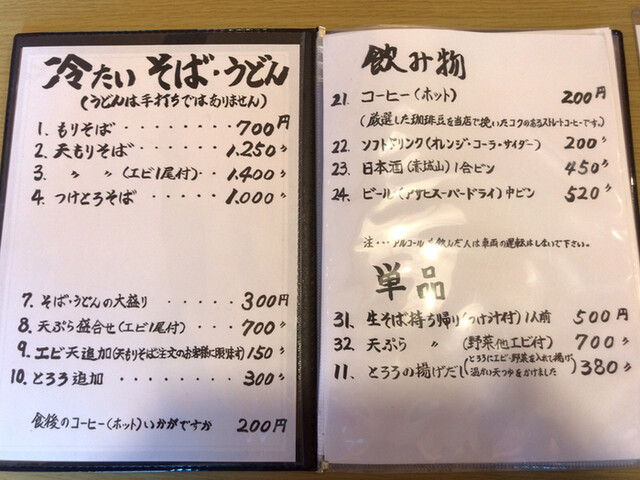 冷たい そば・うどん
(うどんは手打ちではありません)
1. もりそば ・・・・・・・・ 700円
2. 天もりそば ・・・・・・ 1.250〃
3. 〃 〃 (エビ1尾付) ・・・ 1.400〃
4. つけとろそば ・・・・・ 1.000〃
7. そば・うどんの大盛り ・・・・・ 300円
8. 天ぷら盛合せ(エビ1尾付) ・・・ 700〃
9. エビ天追加(天もりそば注文のお客様に限ります) 150〃
10. とろろ追加 ・・・・・・・・ 300〃
食後のコーヒー(ホット)いかがですか 200円
飲み物
21. コーヒー(ホット) 200円
(厳選した珈琲豆を当店で挽いたコクのあるストレートコーヒーです。)
22. ソフトドリンク(オレンジ・コーラ・サイダー) 200〃
23. 日本酒(赤城山)1合ビン 450〃
24. ビール(アサヒスーパードライ)中ビン 630〃
注・・・アルコールを飲んだ人は車両の運転はしないで下さい。
単品
31. 生そば持ち帰り(つけ汁付)1人前 500円
32 天ぷら 〃 (野菜他エビ付) 700〃
11. とろろの揚げだし(とろろにエビ・野菜を入れて揚げ 温かい天つゆをかけました) 380〃